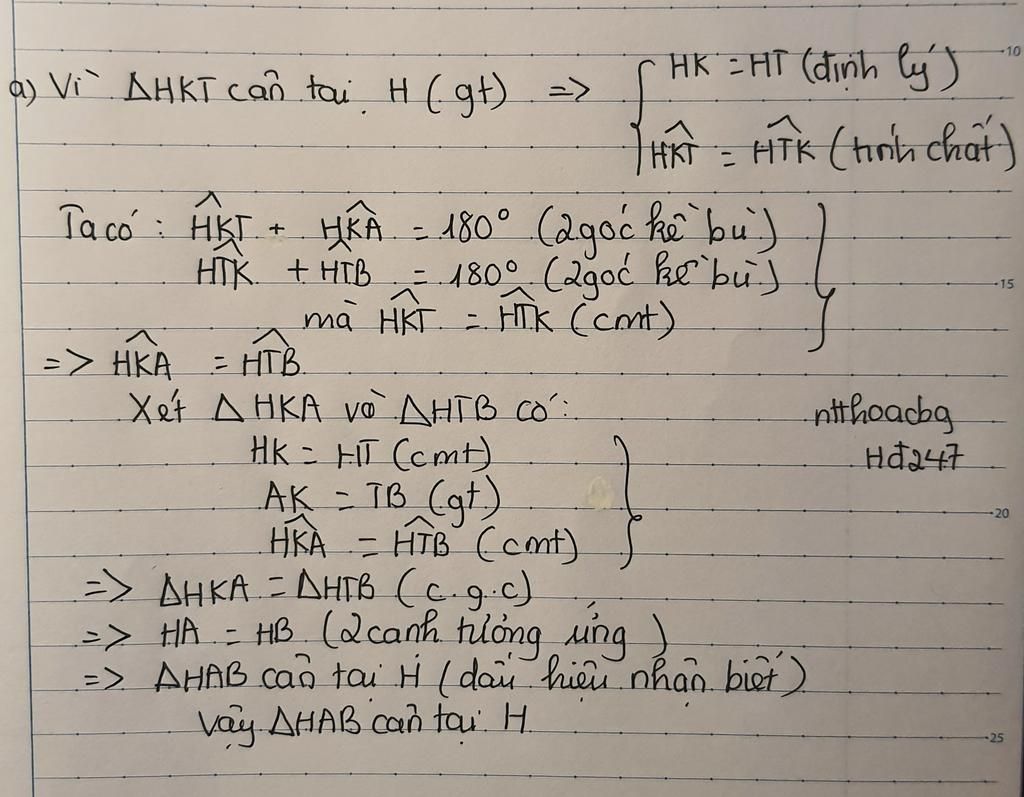 a) Vì ΔHKT cân tại H (gt) => { HK = HT (định lý)
HKT̂ = HTK̂ (tính chất)
Ta có: HKT̂ + HKÂ = 180° (2 góc kề bù)
HTK̂ + HTB̂ = 180° (2 góc kề bù)
mà HKT̂ = HTK̂ (cmt)
=> HKÂ = HTB̂
Xét ΔHKA và ΔHTB có:
nтhoacbg
HK = HT (cmt)
Hđ247
AK = TB (gt)
HKÂ = HTB̂ (cmt)
=> ΔHKA = ΔHTB (c.g.c)
=> HA = HB (2 cạnh tương ứng)
=> ΔHAB cân tại H (dấu hiệu nhận biết)
Vậy ΔHAB cân tại H
10
15
20
25